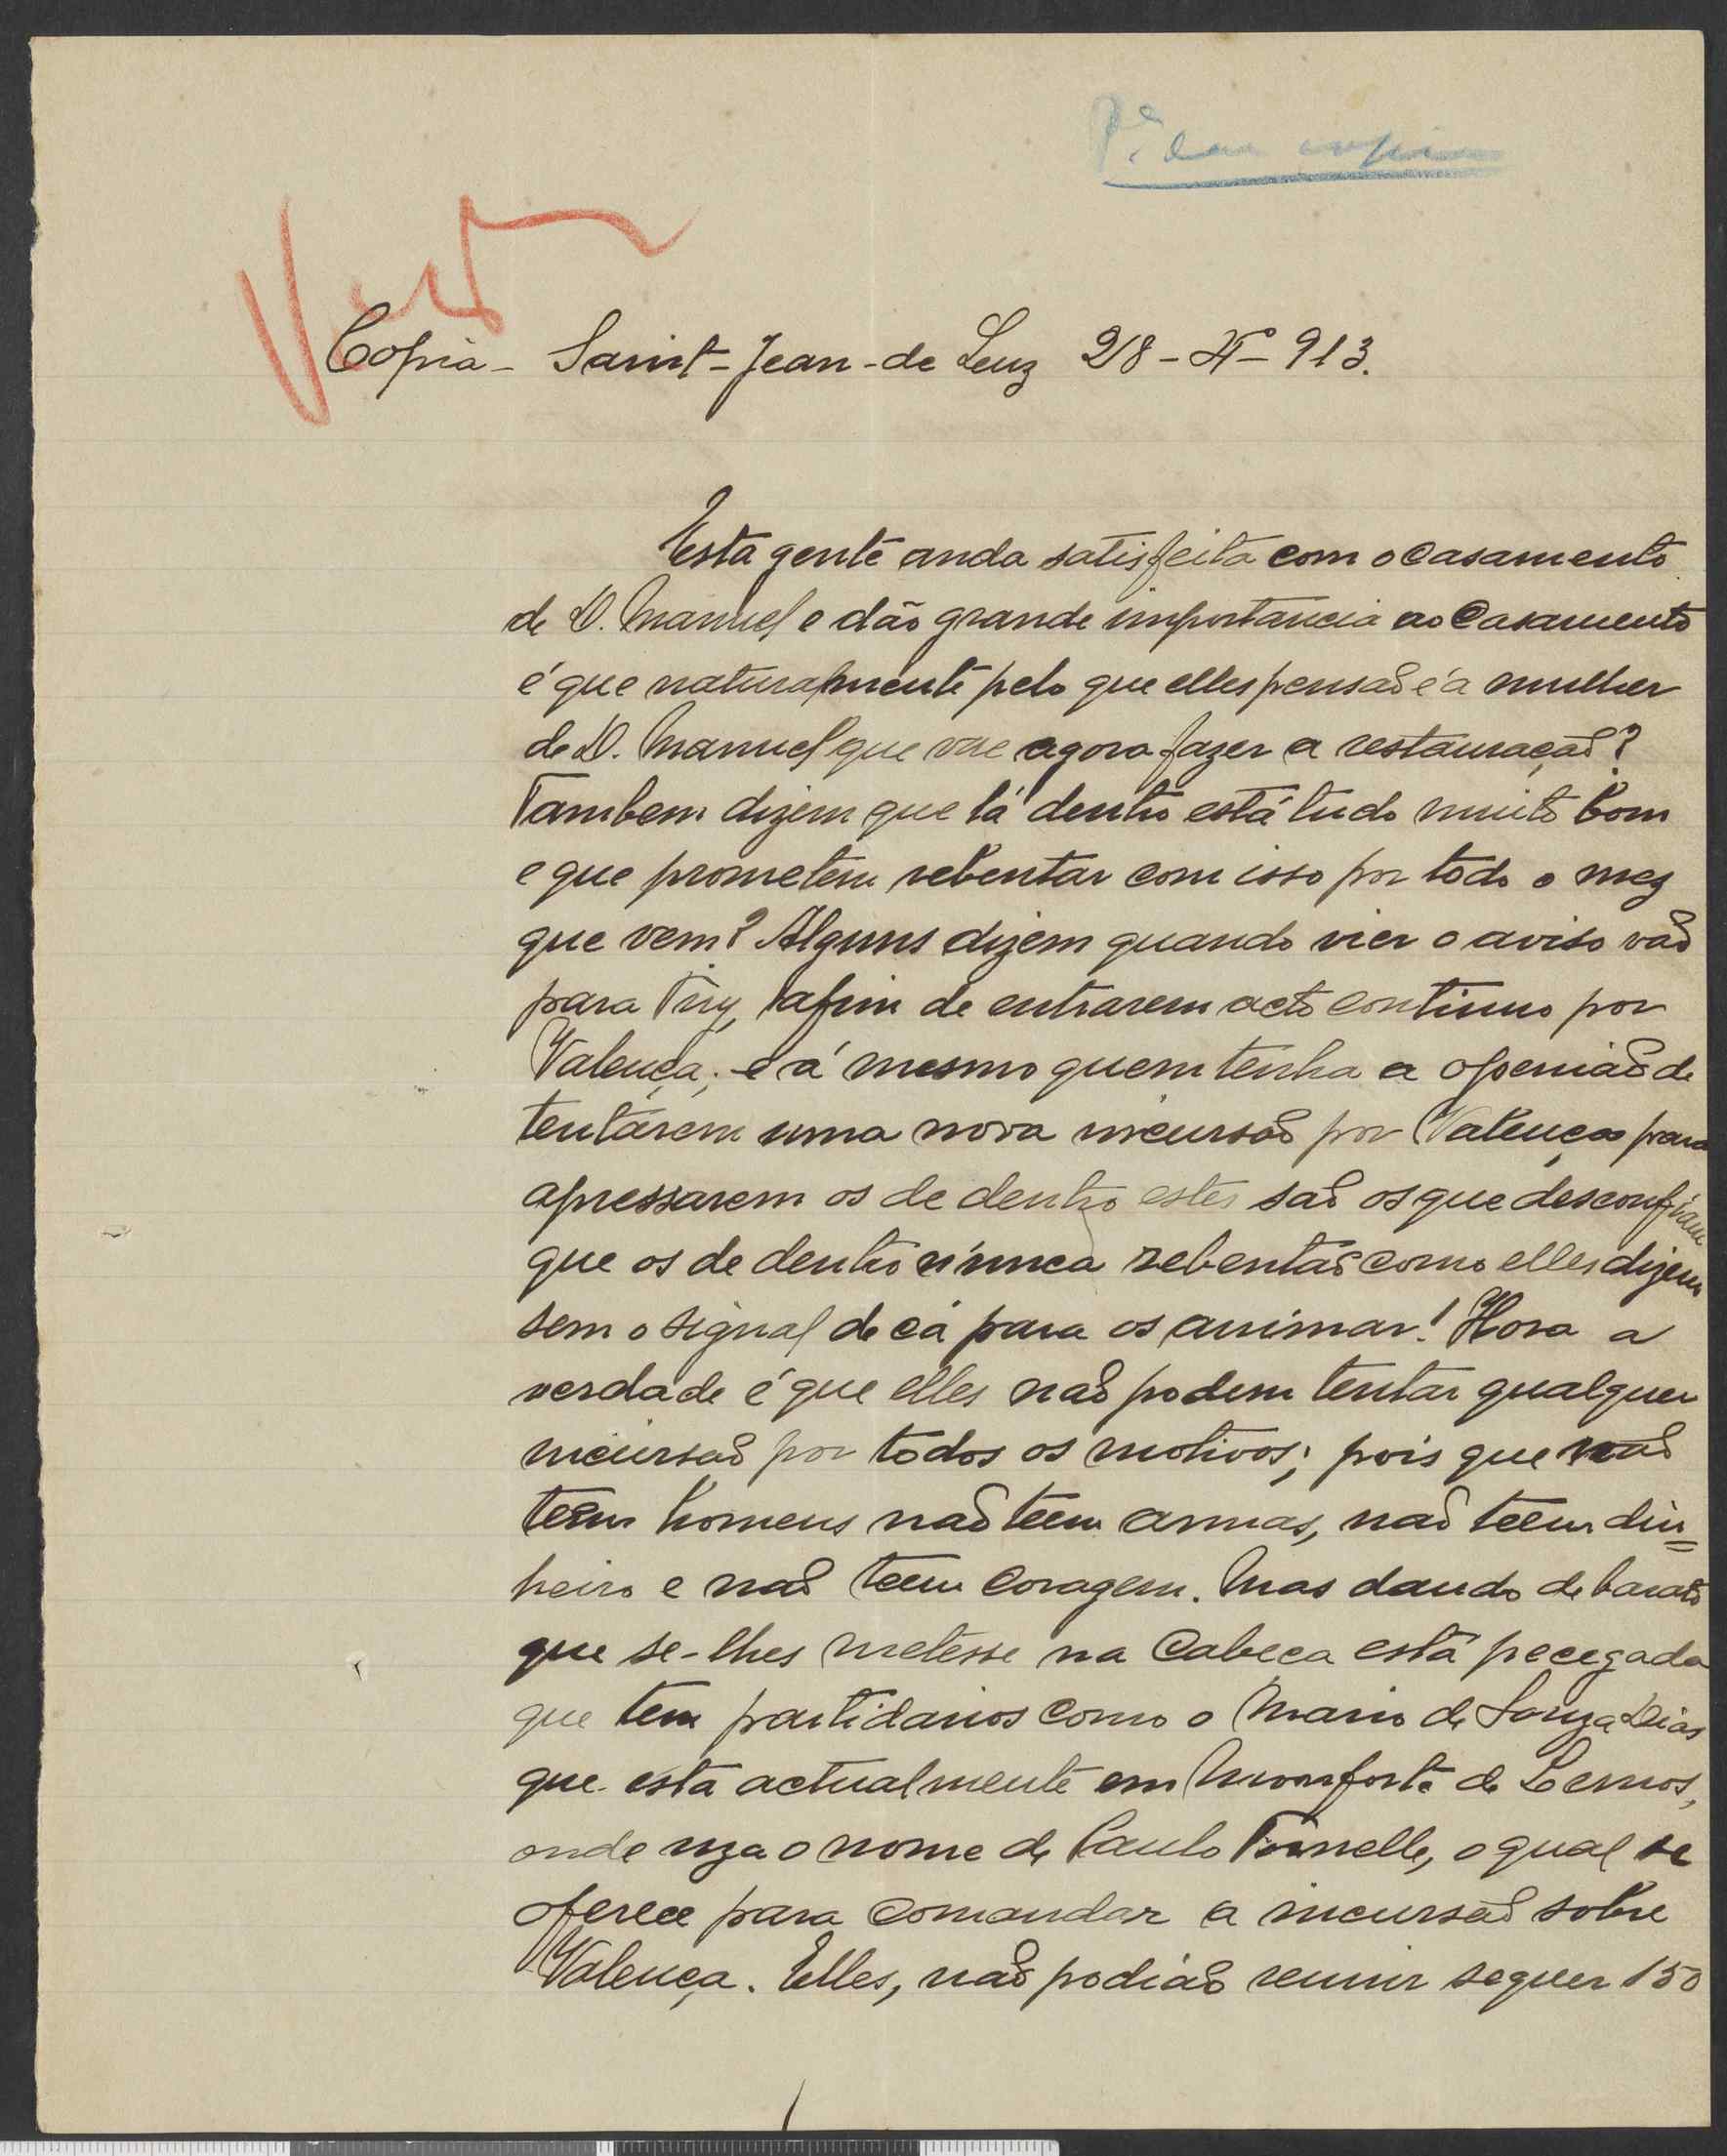 Copia - Saint-Jean-de Luz 28-4º-913.
Esta gente anda satisfeita com o casamento
de D. Manuel e dão grande importancia ao Casamento
é que naturalmente pelo que elles pensaõ é a mulher
de D. Manuel que vae agora fazer a restauraçaõ?
Tambem dizem que lá dentro está tudo muito bom
e que prometem rebentar com isso por todo o mez
que vem? Alguns dizem quando vier o aviso vaõ
para Tuy, afim de entrarem acto continuo por
Valença; e á mesmo quem tenha a openiaõ de
tentarem uma nova incursaõ por Valença para
apressarem os de dentro estes saõ os que desconfiam
que os de dentro nunca rebentaõ como elles dizem
sem o signal de cá para os animar! Hora a
verdade é que elles naõ podem tentar qualquer
incursaõ por todos os motivos; pois que naõ
teem homens naõ teem armas, naõ teem din=
heiro e naõ teem coragem. Mas dando de barato
que se-lhes metesse na Cabeca está pecegada
que tem partidarios como o Mario de Souza Dias
que está actualmente em Monforte de Lemos,
onde uza o nome de Paulo o qual se
oferece para comandar a incursaõ sobre
Valença. Elles, naõ podiaõ reunir sequer 150